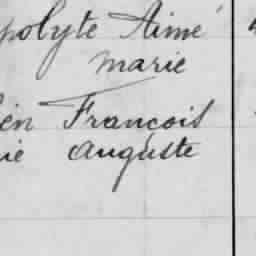 polyte Aimé
marie
ien François
ie auguste